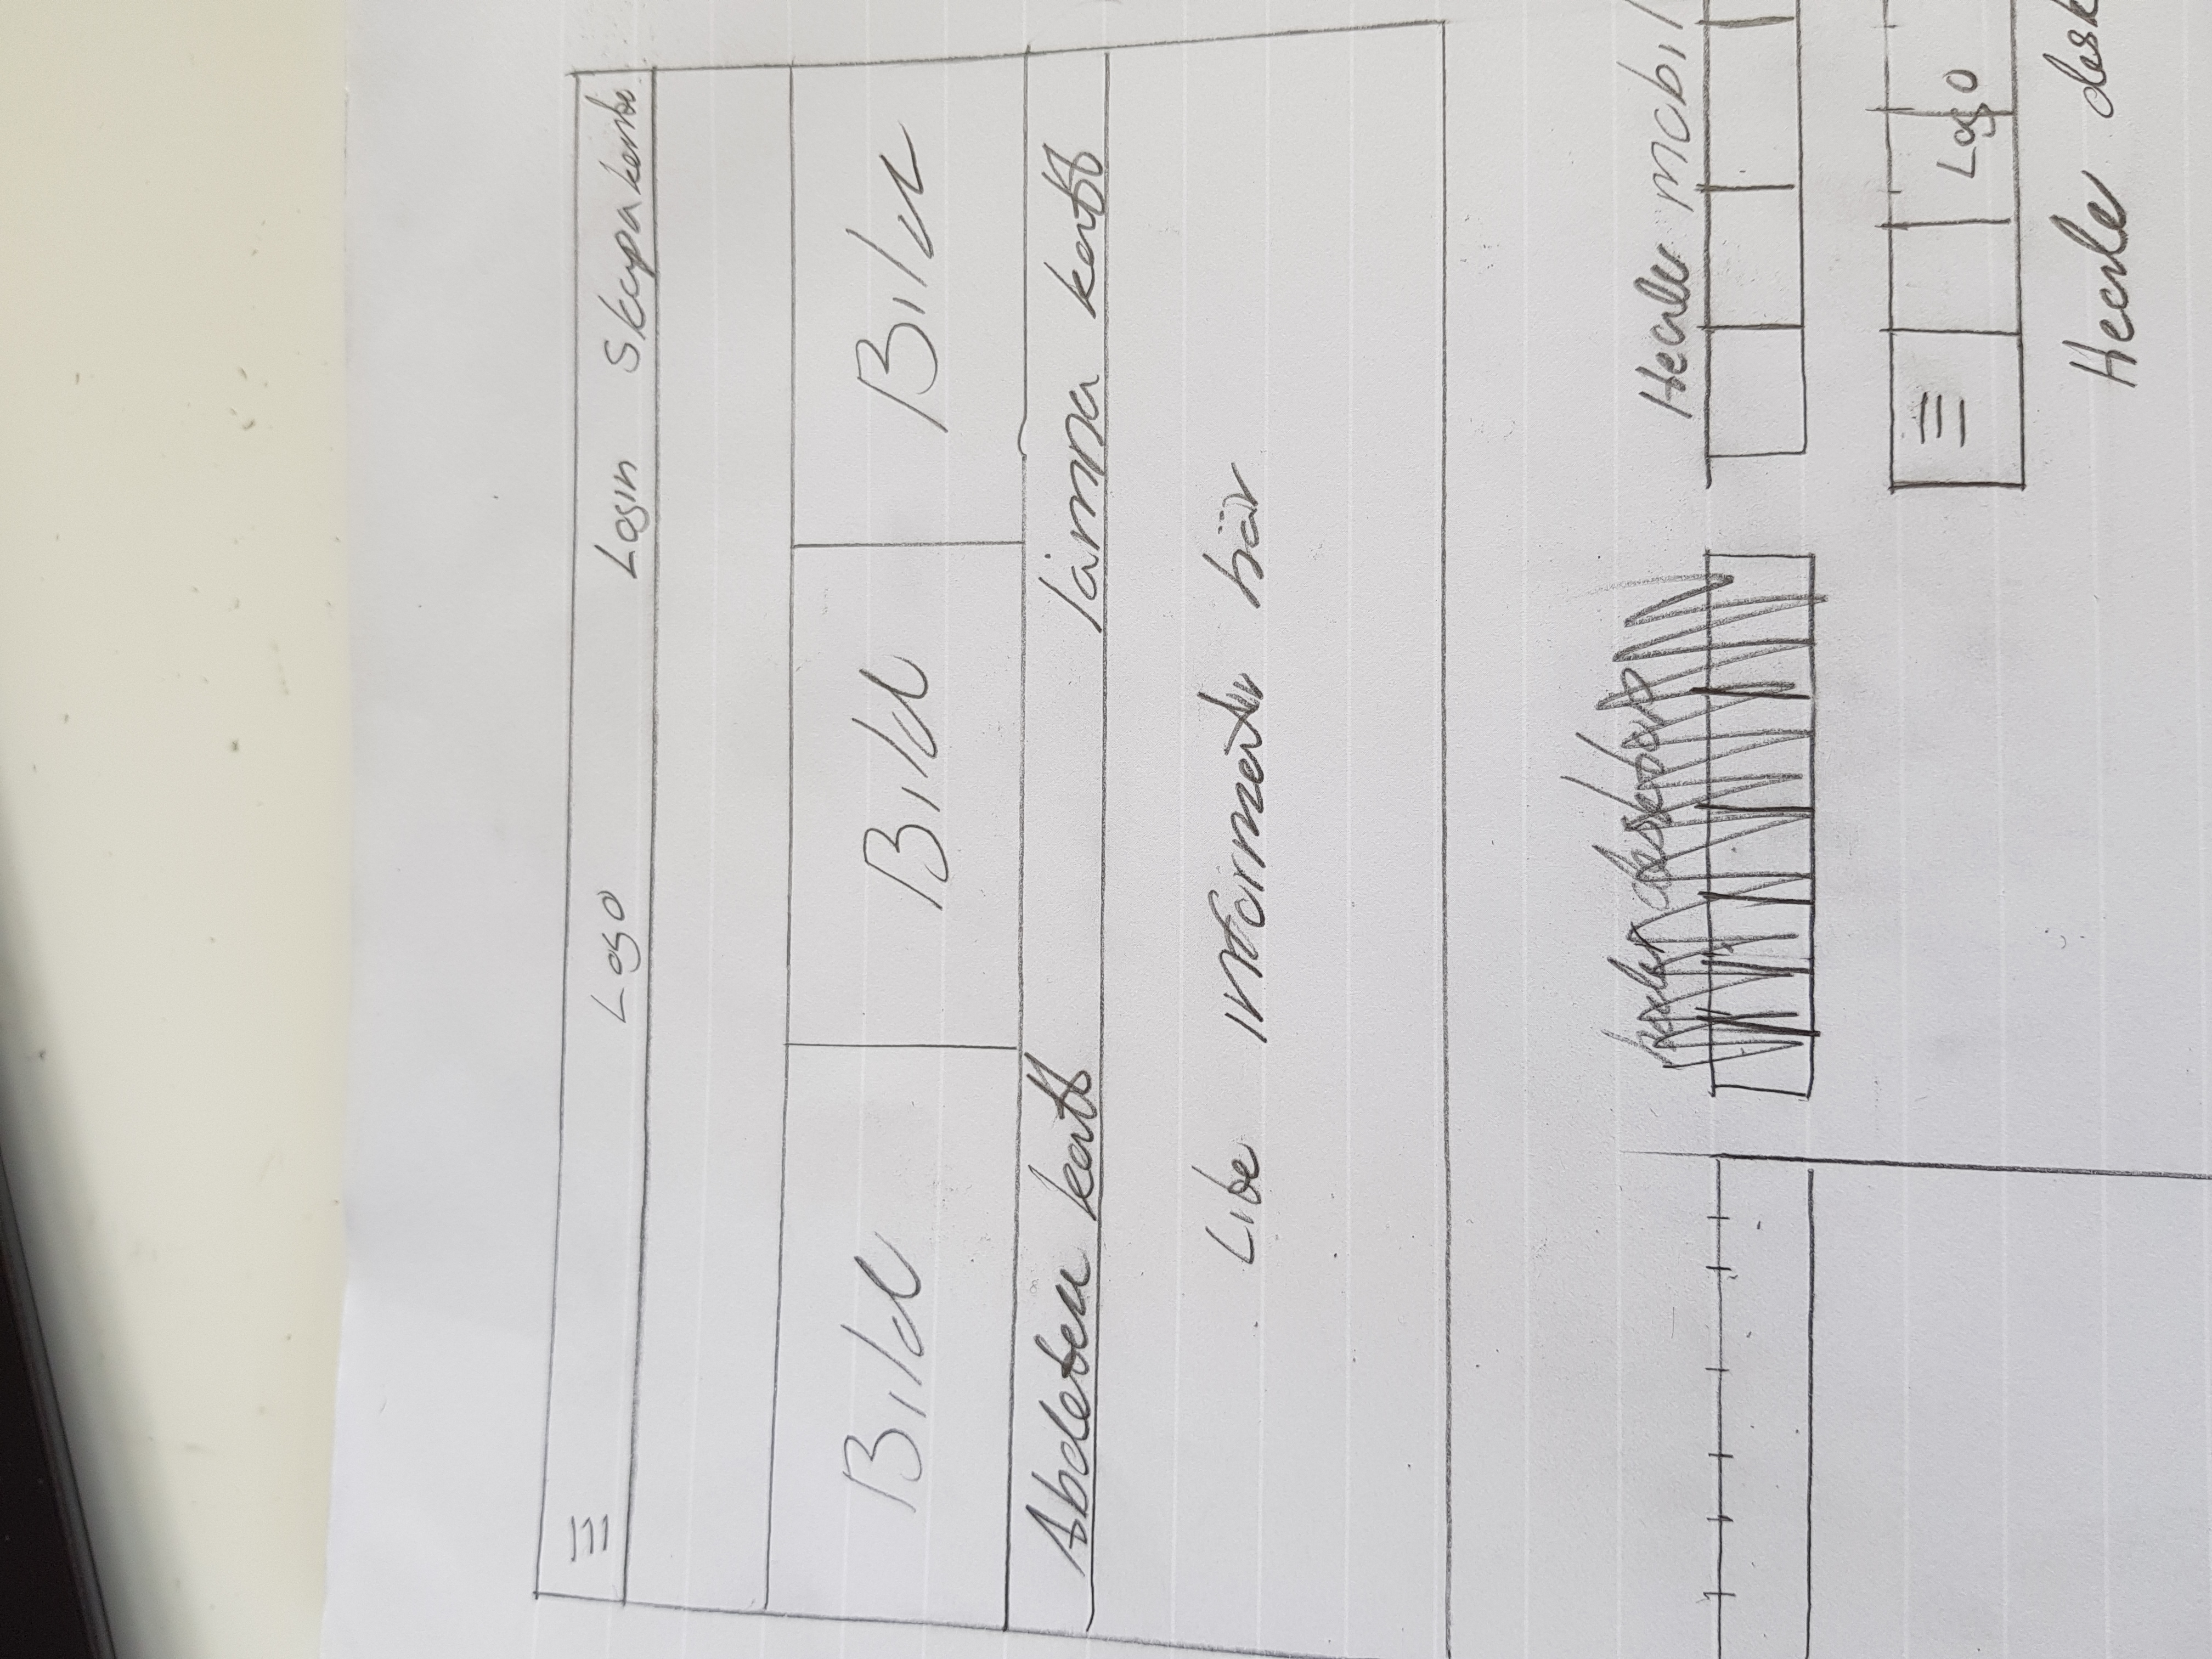 Logo Login Skapa konto
Bild Bild Bild
Abdetera katt lämna katt
Lite information här
header desktop Header mobil
Logo
Header desk